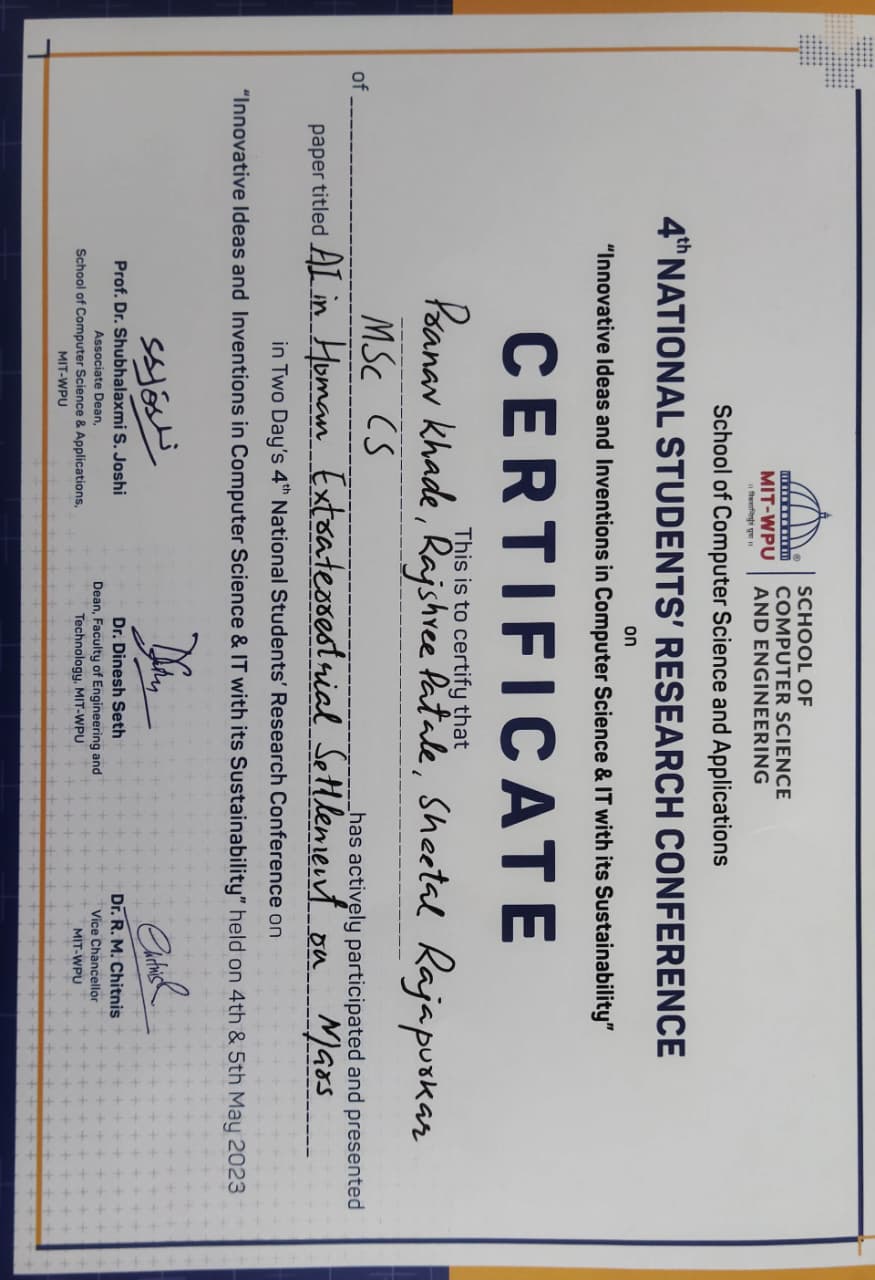 MIT-WPU
®
SCHOOL OF
COMPUTER SCIENCE
AND ENGINEERING
School of Computer Science and Applications
4th NATIONAL STUDENTS' RESEARCH CONFERENCE
on
"Innovative Ideas and Inventions in Computer Science & IT with its Sustainability"
CERTIFICATE
This is to certify that
Pranav Khade, Rajshree Patale, Sheetal Rajapurkar
MSc CS
of has actively participated and presented
paper titled AI in Human Extraterrestrial Settlement on Mars
in Two Day's 4th National Students' Research Conference on
"Innovative Ideas and Inventions in Computer Science & IT with its Sustainability" held on 4th & 5th May 2023
SSJoshi
Chitnis
Prof. Dr. Shubhalaxmi S. Joshi
Associate Dean,
School of Computer Science & Applications,
MIT-WPU
Dr. Dinesh Seth
Dean, Faculty of Engineering and
Technology, MIT-WPU
Dr. R. M. Chitnis
Vice Chancellor
MIT-WPU